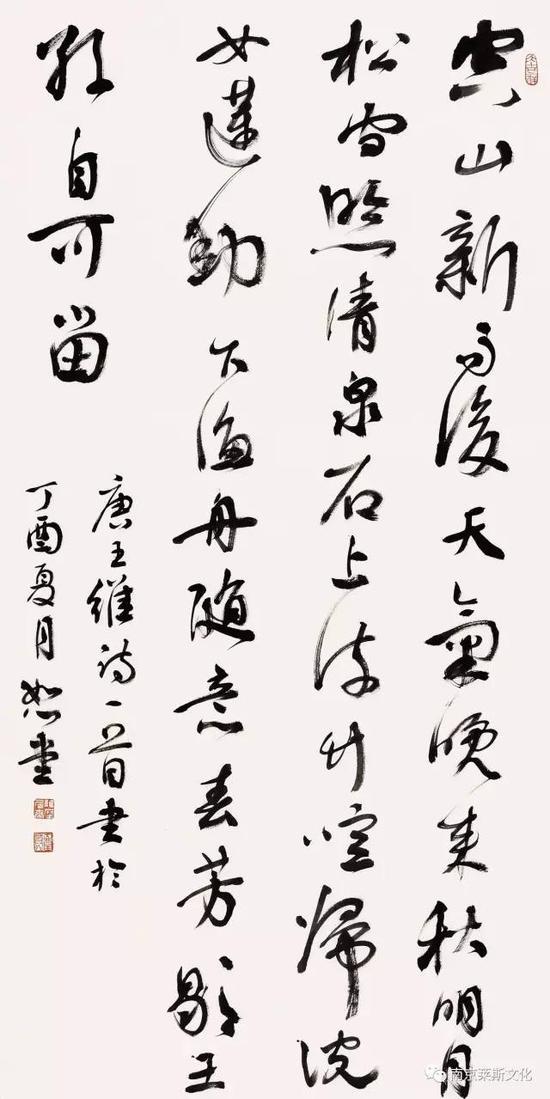 空山新雨後天氣晚来秋明月
松間照清泉石上流竹喧歸浣
女蓮動下漁舟隨意春芳歇王
孫自可留
唐王維詩一首書於
丁酉夏月恕堂
南京莱斯文化